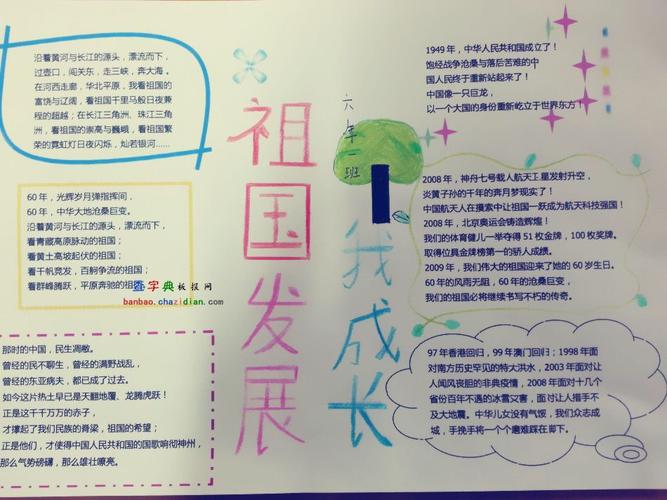 沿着黄河与长江的源头，漂流而下，
过壶口，闯关东，走三峡，奔大海。
在河西走廊，华北平原，我看祖国的
富饶与辽阔，看祖国千里马般日夜兼
程的超越；在长江三角洲、珠江三角
洲，看祖国的崇高与巍峨，看祖国繁
荣的霓虹灯日夜闪烁，灿若银河……
60 年，光辉岁月弹指挥间，
60 年，中华大地沧桑巨变。
沿着黄河与长江的源头，漂流而下：
看青藏高原脉动的祖国；
看黄土高坡起伏的祖国；
看千帆竞发，百舸争流的祖国；
看群峰腾跃，平原奔驰的祖
查字典板报网
banbao.chazidian.com
那时的中国，民生凋敝。
曾经的民不聊生，曾经的满野战乱，
曾经的东亚病夫，都已成了过去。
如今这片热土早已是天翻地覆、龙腾虎跃！
正是这千千万万的赤子，
才撑起了我们民族的脊梁，祖国的希望；
正是他们，才使得中国人民共和国的国歌响彻神州，
那么气势磅礴，那么雄壮嘹亮。
祖国发展
我成长
六年一班
1949 年，中华人民共和国成立了！
饱经战争沧桑与落后苦难的中
国人民终于重新站起来了！
中国像一只巨龙，
以一个大国的身份重新屹立于世界东方！
2008 年，神舟七号载人航天王星发射升空，
炎黄子孙的千年的奔月梦现实了！
中国航天人在摸索中让祖国一跃成为航天科技强国！
2008 年，北京奥运会铸造辉煌！
我们的体育健儿一举夺得 51 枚金牌，100 枚奖牌。
取得位具金牌榜第一的骄人成绩。
2009 年，我们伟大的祖国迎来了她的 60 岁生日。
60 年的风雨无阻，60 年的沧桑巨变，
我们的祖国必将继续书写不朽的传奇。
97 年香港回归，99 年澳门回归；1998 年面
对南方历史罕见的特大洪水，2003 年面对让
人闻风丧胆的非典疫情，2008 年面对十几个
省份百年不遇的冰雪灾害，面对让人措手不
及大地震。中华儿女没有气馁，我们众志成
城，手挽手将一个个磨难踩在脚下。